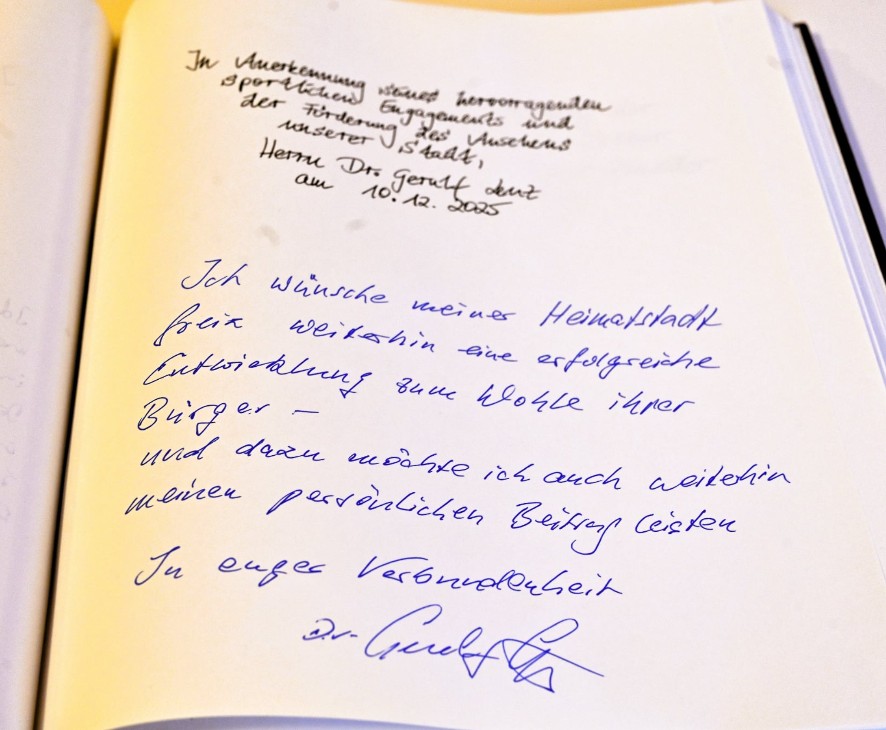 In Anerkennung seines hervorragenden
sportlichen Engagements und
der Förderung des Ansehens
unserer Stadt,
Herrn Dr. Gerulf Lenz
am 10.12.2025
Ich wünsche meiner Heimatstadt
Greiz weiterhin eine erfolgreiche
Entwicklung zum Wohle ihrer
Bürger –
und dazu möchte ich auch weiterhin
meinen persönlichen Beitrag leisten
In enger Verbundenheit
Dr.